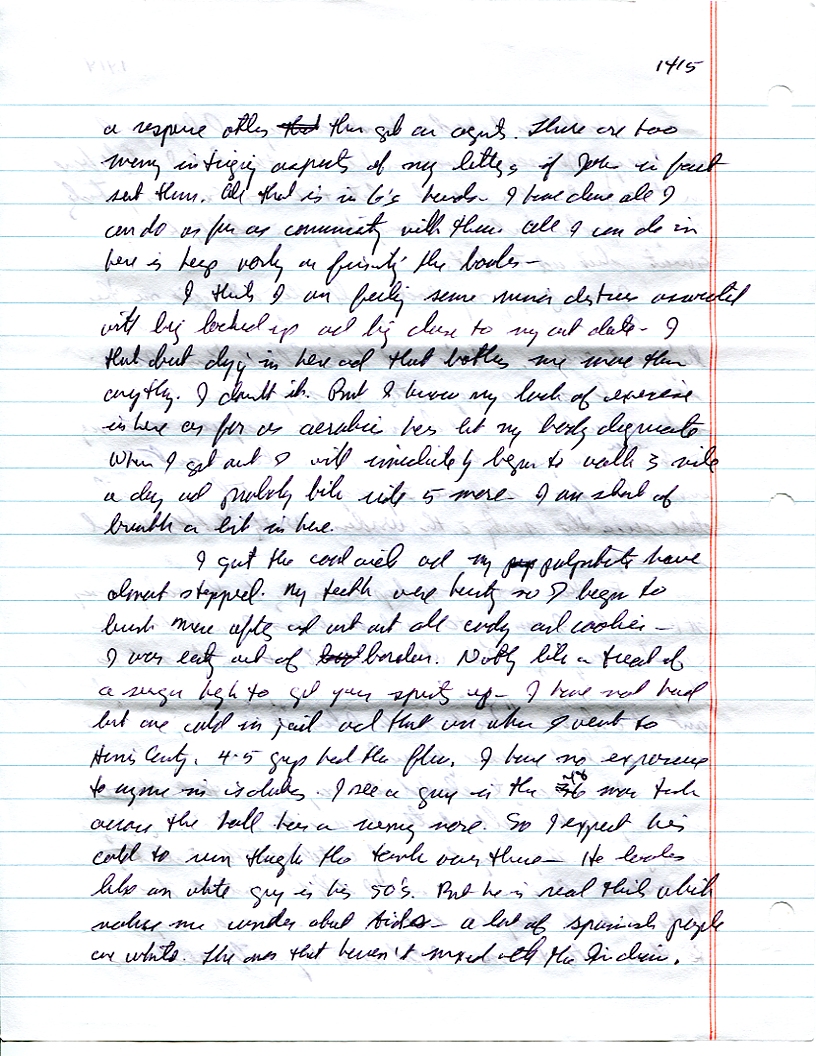 1415
a response other than get an agent. There are too
many intriging aspects of my letters if John in fact
sent them. All that is in G's hands - I have done all I
can do as far as comunicaty with them all I can do in
here is keep workg on finishg the books -
I think I am feelig some minor distress associated
with big locked up ad big close to my out date - I
that bout dyig in here ad that bothers me more than
anythg. I doubt it. But I know my lack of exercise
in here as far as aerobic has let my body digenerate
When I get out I will imediately begin to walk 3 mile
a day ad probably bike ride 5 more - I am short of
breath a bit in here.
I quit the ad my palpatats have
almost stopped. My teeth were hurtg so I began to
brush more often ad cut out all candy ad cookies -
I was eatg out of bordom. Nothg like a treat of
a sugar high to get your spirits up - I have not had
but one cold in jail ad that was when I went to
Harris County. 4-5 guys had the flue. I have no exposure
to anyone in . I see a guy in the man tank
across the hall has a runny nose. So I expect his
cold to run though the tank over there - He looks
like an white guy in his 50's. But he is real thin which
makes me wonder about Aides - a lot of spanish people
are white. The ones that haven't mixed with the Indian.